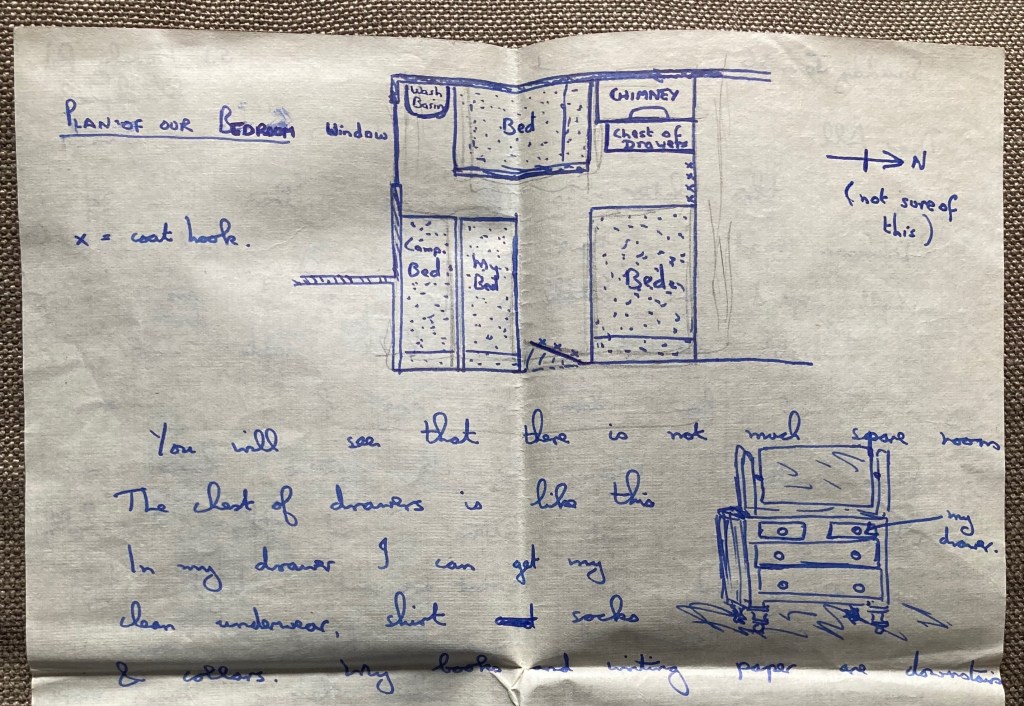 PLAN OF OUR BEDROOM
Window
Wash
Basin
Bed
CHIMNEY
Chest of
Drawers
N
(not sure of
this)
x = coat hook.
Camp
Bed
My
Bed
Bed
You will see that there is not much spare room
The chest of drawers is like this
my
drawer.
In my drawer I can get my
clean underwear, shirt socks
& collars. My books and writing paper are downstairs